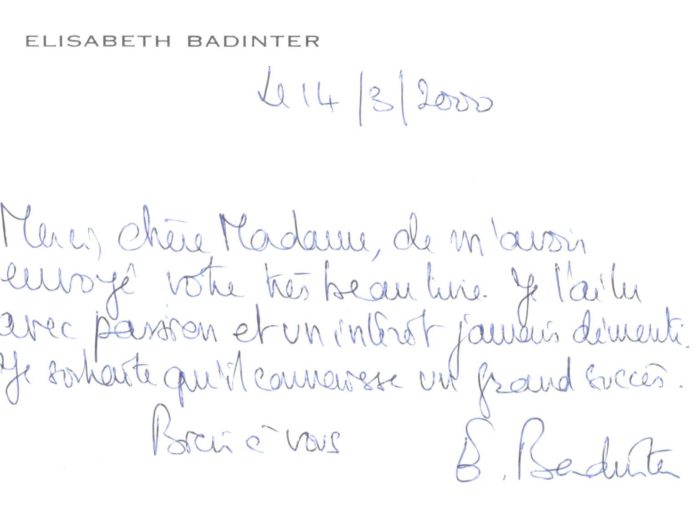 ELISABETH BADINTER
Le 14/3/2000
Merci, chère Madame, de m'avoir
envoyé votre très beau livre. Je l'ai lu
avec passion et un intérêt jamais démenti.
Je souhaite qu'il connaisse un grand succès.
Bien à vous
E. Badinter